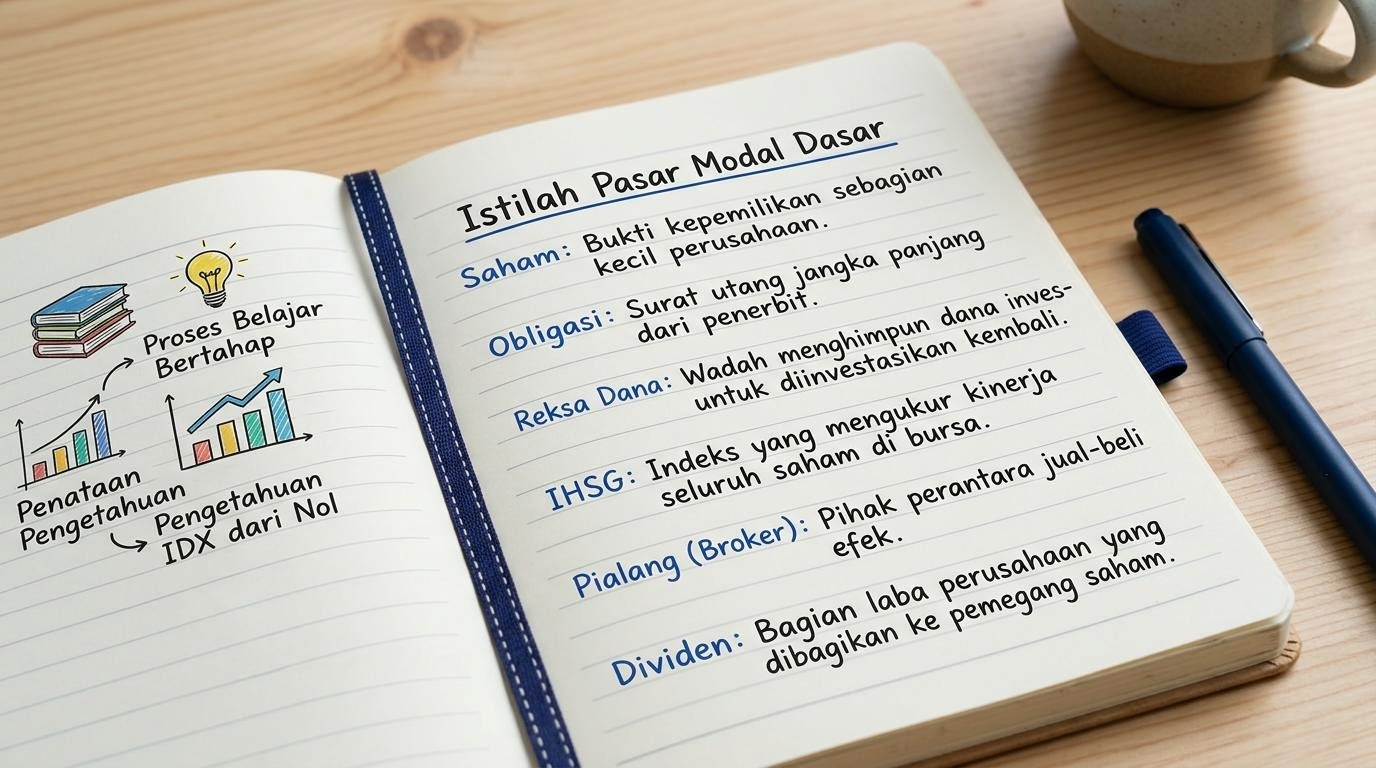 Proses Belajar
Bertahap
Penataan
Pengetahuan
Pengetahuan
IDX dari Nol
Istilah Pasar Modal Dasar
Saham: Bukti kepemilikan sebagian
kecil perusahaan.
Obligasi: Surat utang jangka panjang
dari penerbit.
Reksa Dana: Wadah menghimpun dana inves-
untuk diinvestasikan kembali.
IHSG: Indeks yang mengukur kinerja
seluruh saham di bursa.
Pialang (Broker): Pihak perantara jual-beli
efek.
Dividen: Bagian laba perusahaan yang
dibagikan ke pemegang saham.